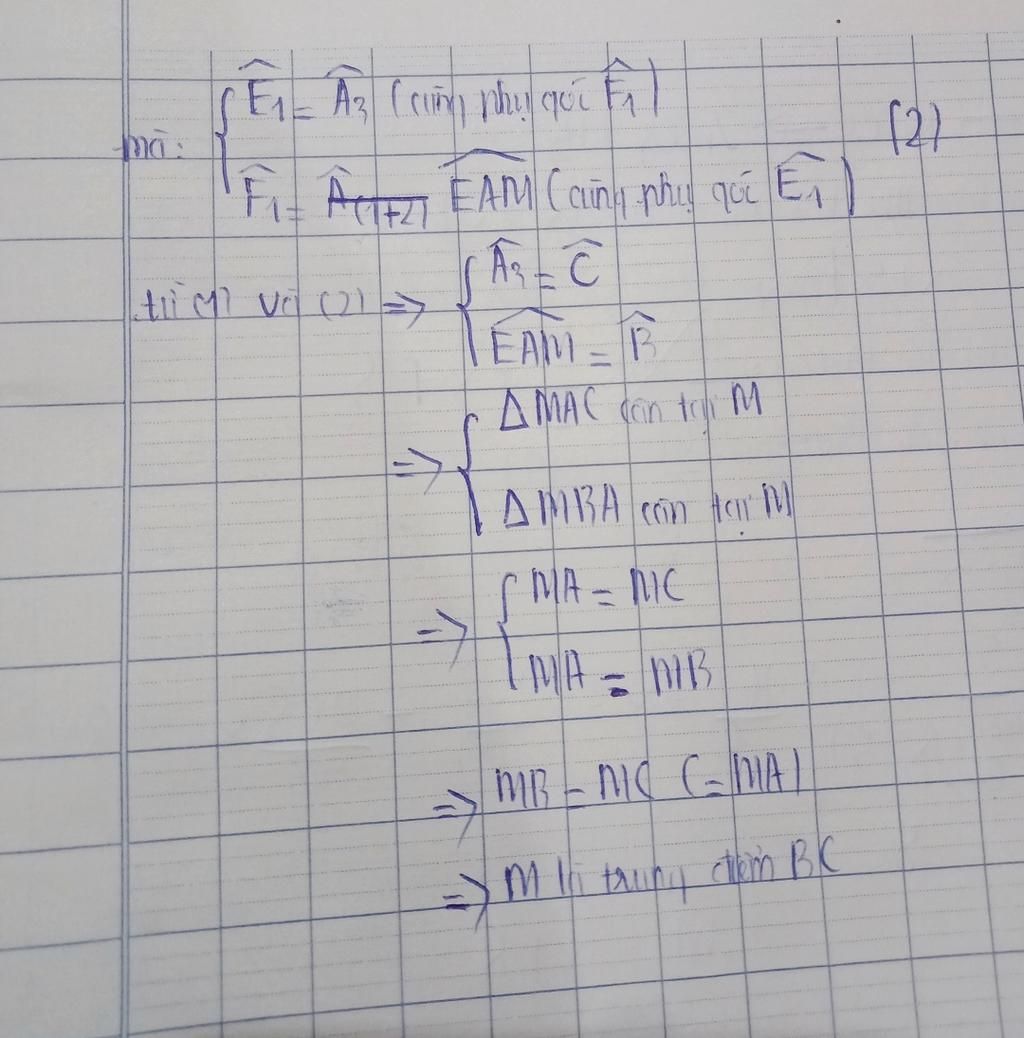 mà: { Ê₁ = Â₃ (cùng phụ góc F̂₁)
F̂₁ = Â₍₁₊₂₎ EAM (cùng phụ góc Ê₁) (2)
từ (1) và (2) => { Â₃ = Ĉ
EAM = B̂
=> { ΔMAC cân tại M
ΔMBA cân tại M
=> { MA = MC
MA = MB
=> MB = MC (= MA)
=> M là trung điểm BC